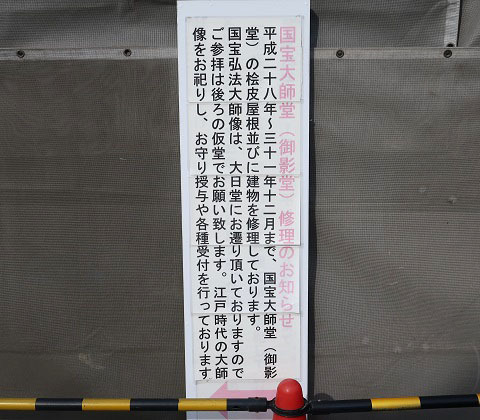 国宝大師堂（御影堂）修理のお知らせ
平成二十八年～三十一年十二月まで、国宝大師堂（御影
堂）の桧皮屋根並びに建物を修理しております。
国宝弘法大師像は、大日堂にお遷り頂いておりますので
ご参拝は後ろの仮堂でお願い致します。江戸時代の大師
像をお祀りし、お守り授与や各種受付を行っております